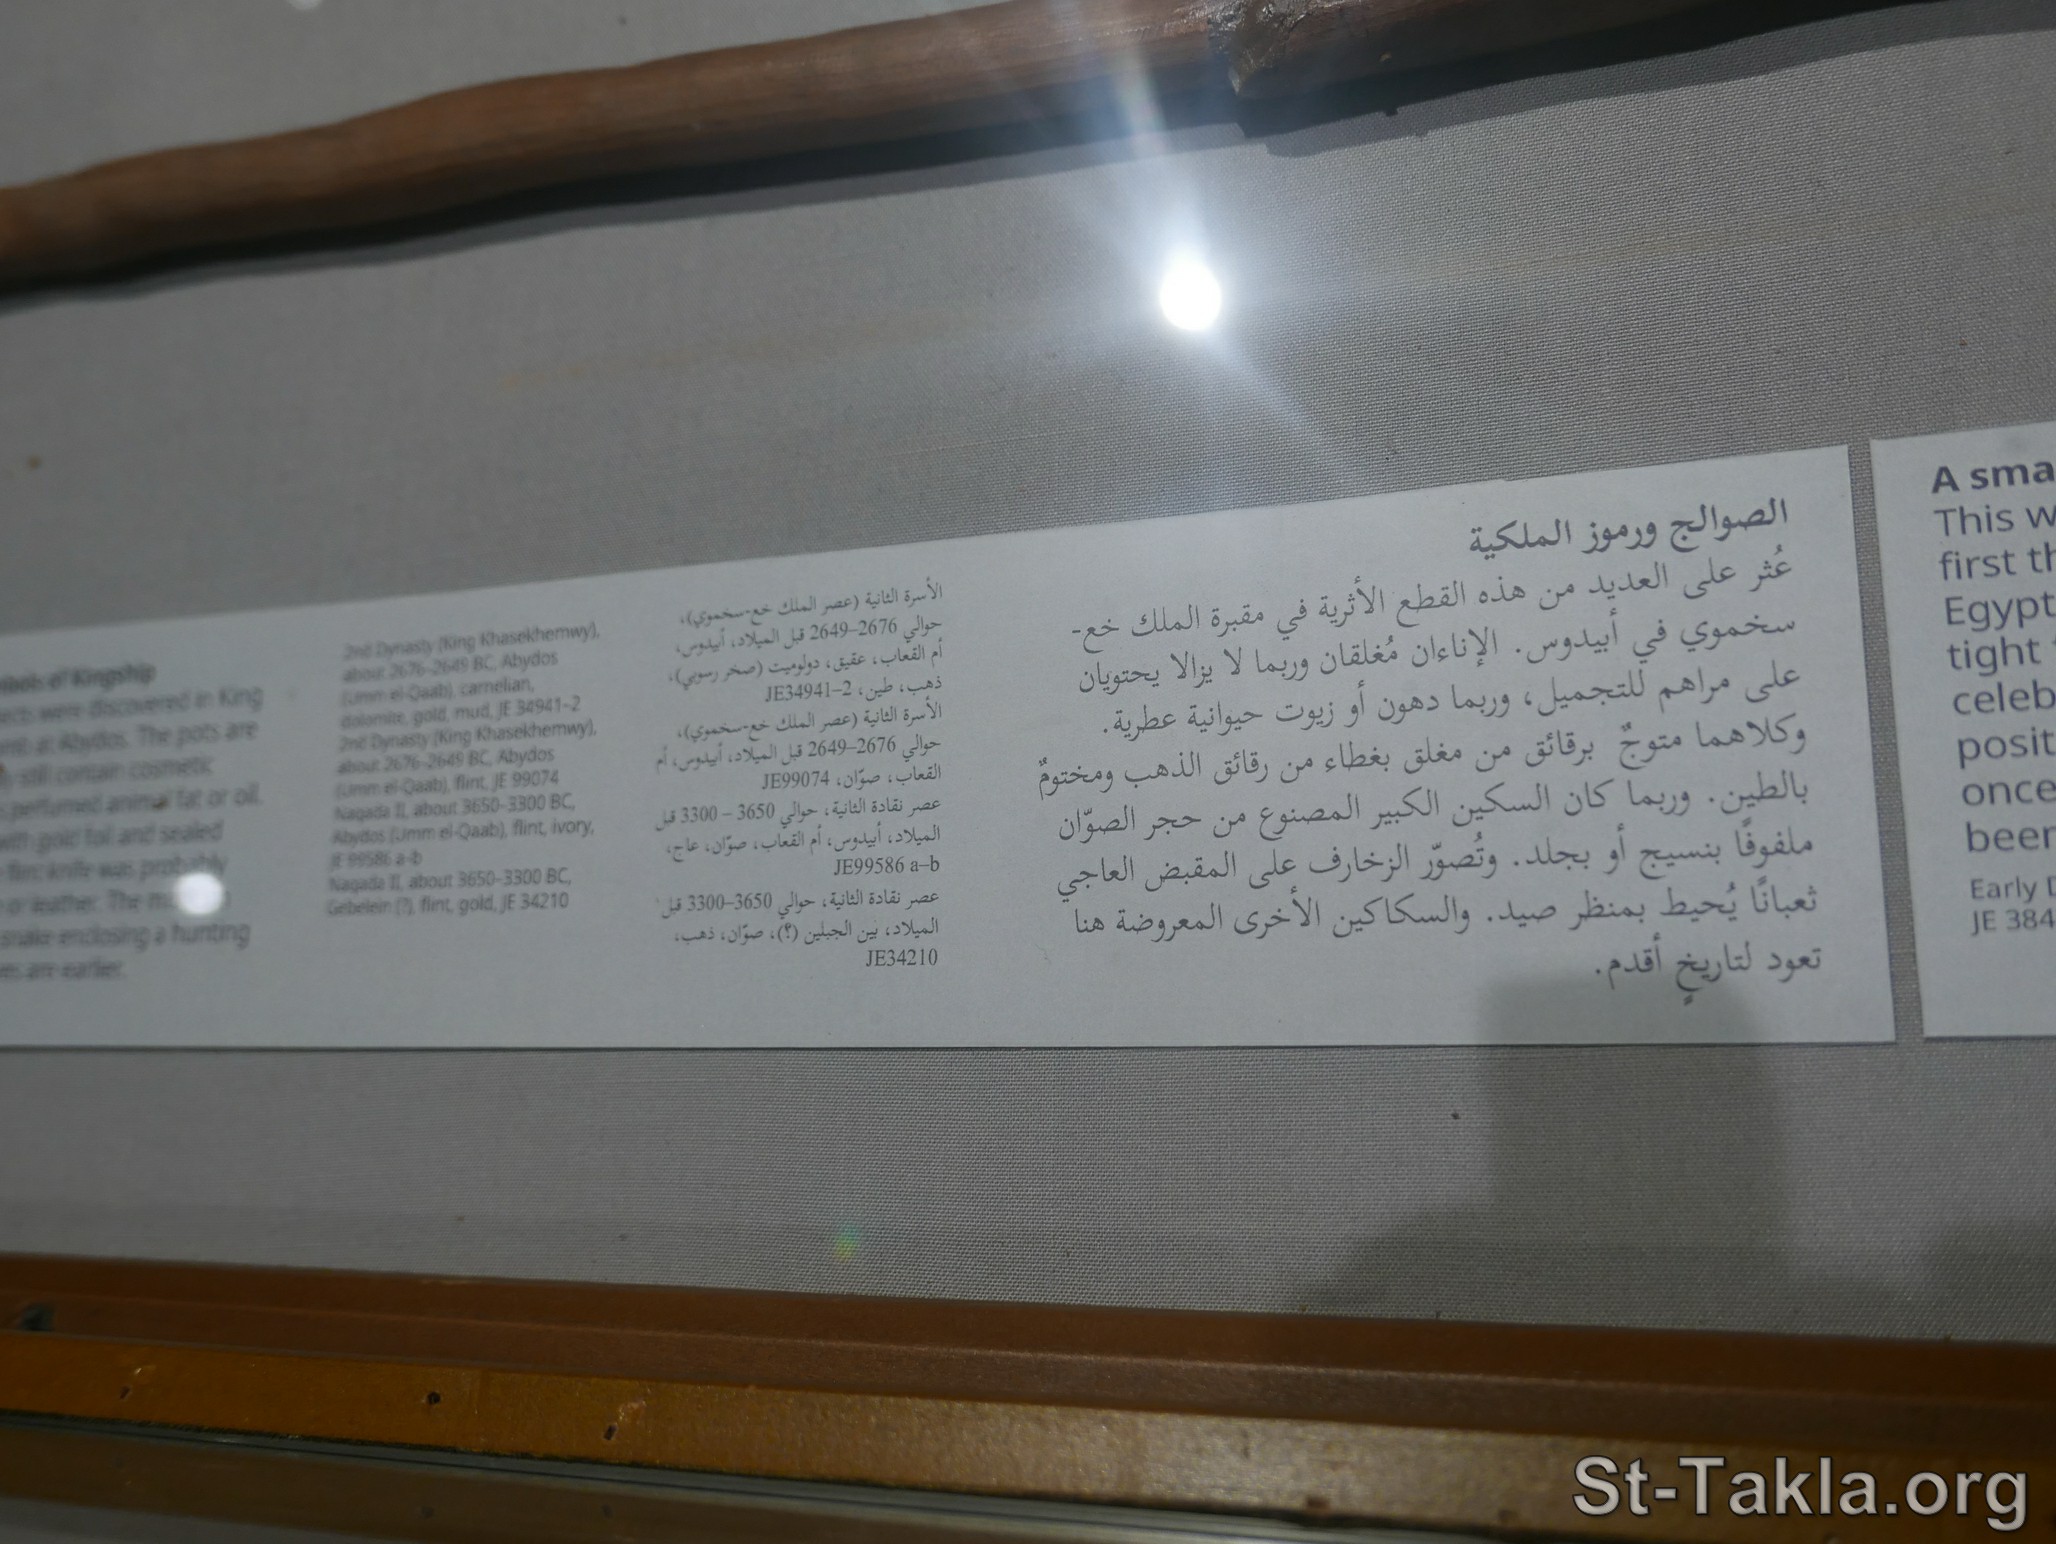 mbols of Kingship
jects were discovered in King
omb at Abydos. The pots are
y still contain cosmetic
s perfumed animal fat or oil.
with gold foil and sealed
flint knife was probably
or leather. The
snake enclosing a hunting
es are earlier.
2nd Dynasty (King Khasekhemwy),
about 2676–2649 BC, Abydos
(Umm el-Qaab), carnelian,
dolomite, gold, mud, JE 34941–2
2nd Dynasty (King Khasekhemwy),
about 2676–2649 BC, Abydos
(Umm el-Qaab), flint, JE 99074
Naqada II, about 3650–3300 BC,
Abydos (Umm el-Qaab), flint, ivory,
JE 99586 a–b
Naqada II, about 3650–3300 BC,
Gebelein (?), flint, gold, JE 34210
الأسرة الثانية (عصر الملك خع-سخموي)،
حوالي 2676–2649 قبل الميلاد، أبيدوس،
أم القعاب، عقيق، دولوميت (صخر رسوبي)،
ذهب، طين، JE34941–2
الأسرة الثانية (عصر الملك خع-سخموي)،
حوالي 2676–2649 قبل الميلاد، أبيدوس، أم
القعاب، صوّان، JE99074
عصر نقادة الثانية، حوالي 3650 – 3300 قبل
الميلاد، أبيدوس، أم القعاب، صوّان، عاج،
JE99586 a–b
عصر نقادة الثانية، حوالي 3650–3300 قبل
الميلاد، بين الجبلين (؟)، صوّان، ذهب،
JE34210
الصوالج ورموز الملكية
عُثر على العديد من هذه القطع الأثرية في مقبرة الملك خع-
سخموي في أبيدوس. الإناءان مُغلقان وربما لا يزالا يحتويان
على مراهم للتجميل، وربما دهون أو زيوت حيوانية عطرية.
وكلاهما متوجٌ برقائق من مغلق بغطاء من رقائق الذهب ومختومٌ
بالطين. وربما كان السكين الكبير المصنوع من حجر الصوّان
ملفوفًا بنسيج أو بجلد. وتُصوّر الزخارف على المقبض العاجي
ثعبانًا يُحيط بمنظر صيد. والسكاكين الأخرى المعروضة هنا
تعود لتاريخٍ أقدم.
A sma
This w
first th
Egypt
tight
celeb
posit
once
been
Early D
JE 384
St-Takla.org